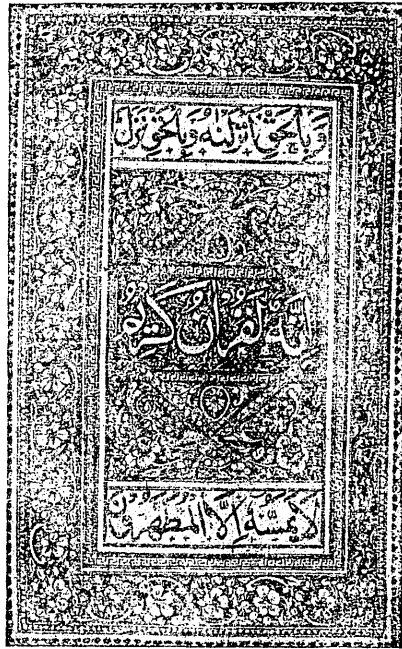 وَبِالْحَقِّ أَنْزَلْنَاهُ وَبِالْحَقِّ نَزَلَ
إِنَّهُ لَقُرْآنٌ كَرِيمٌ
لَا يَمَسُّهُ إِلَّا الْمُطَهَّرُونَ